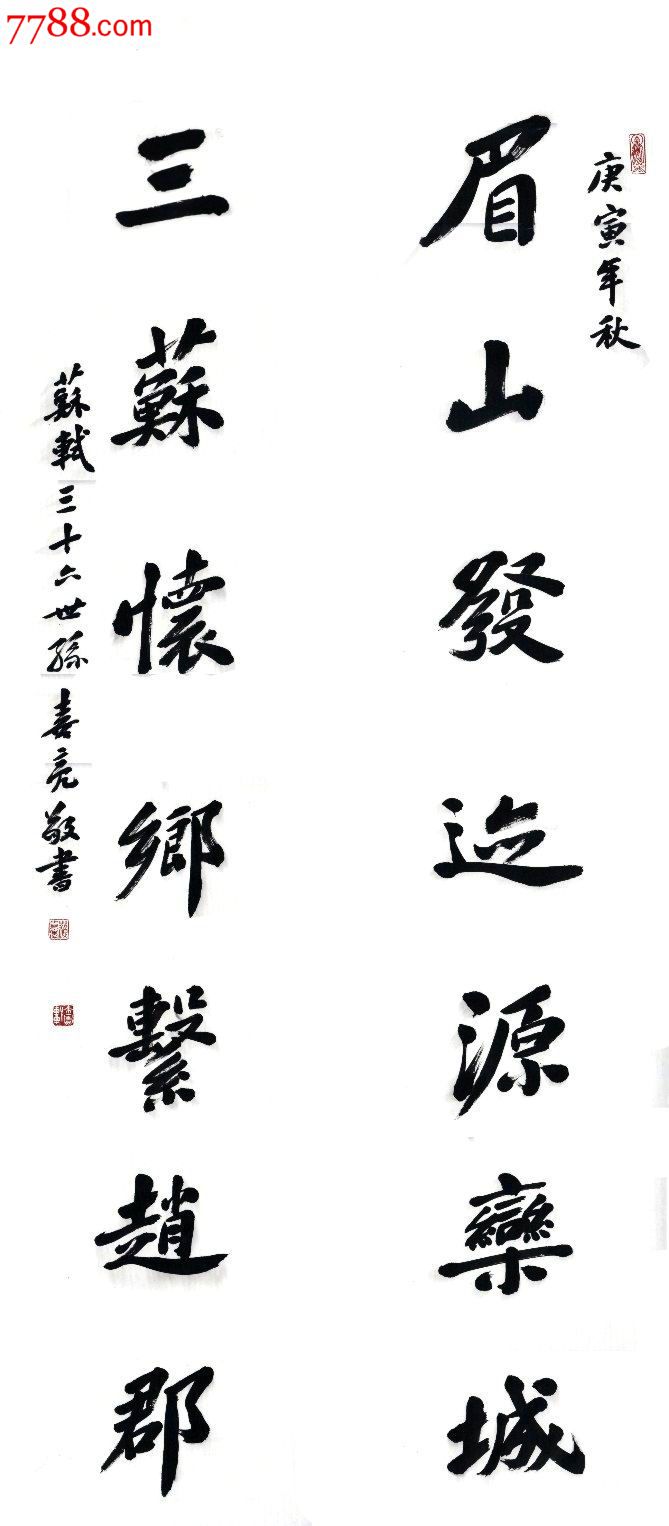 7788.com
庚寅年秋
眉山發迹源欒城
三蘇懷鄉繫趙郡
蘇軾三十六世孫喜亮敬書